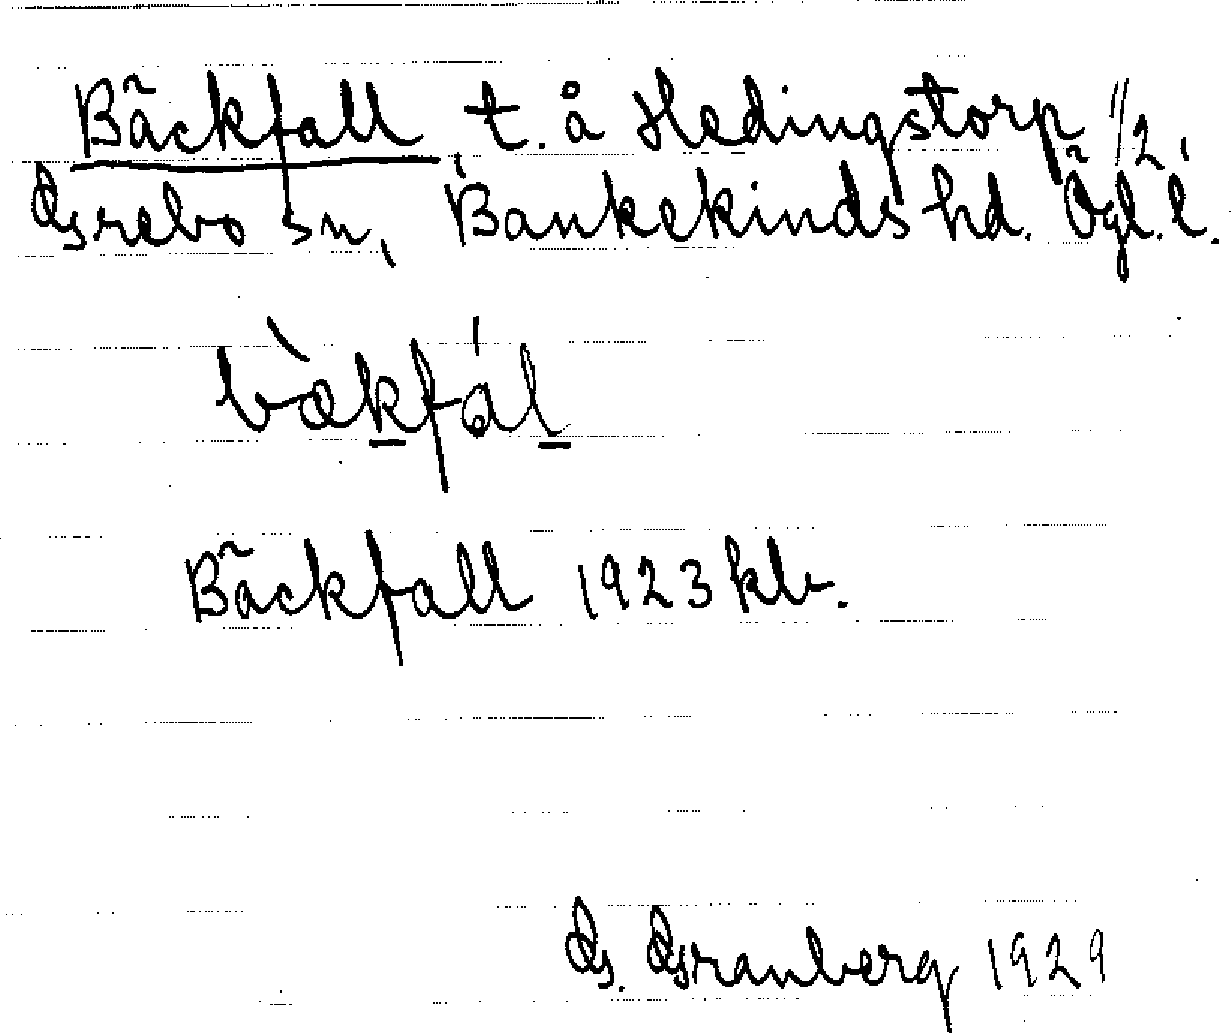 Bäckfall t. å Hedingstorp 1/2
Grebo sn, Bankekinds hd. Ögl. l.
bæ̀kfál
Bäckfall 1923 kb.
G. Granberg 1929